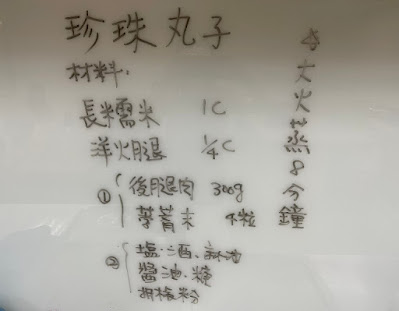 珍珠丸子
材料:
長糯米 1C
洋火腿 ¼C
① 後腿肉 300g
荸薺末 4粒
② 塩.酒.麻油
醬油.糖
胡椒粉
大火蒸8分鐘